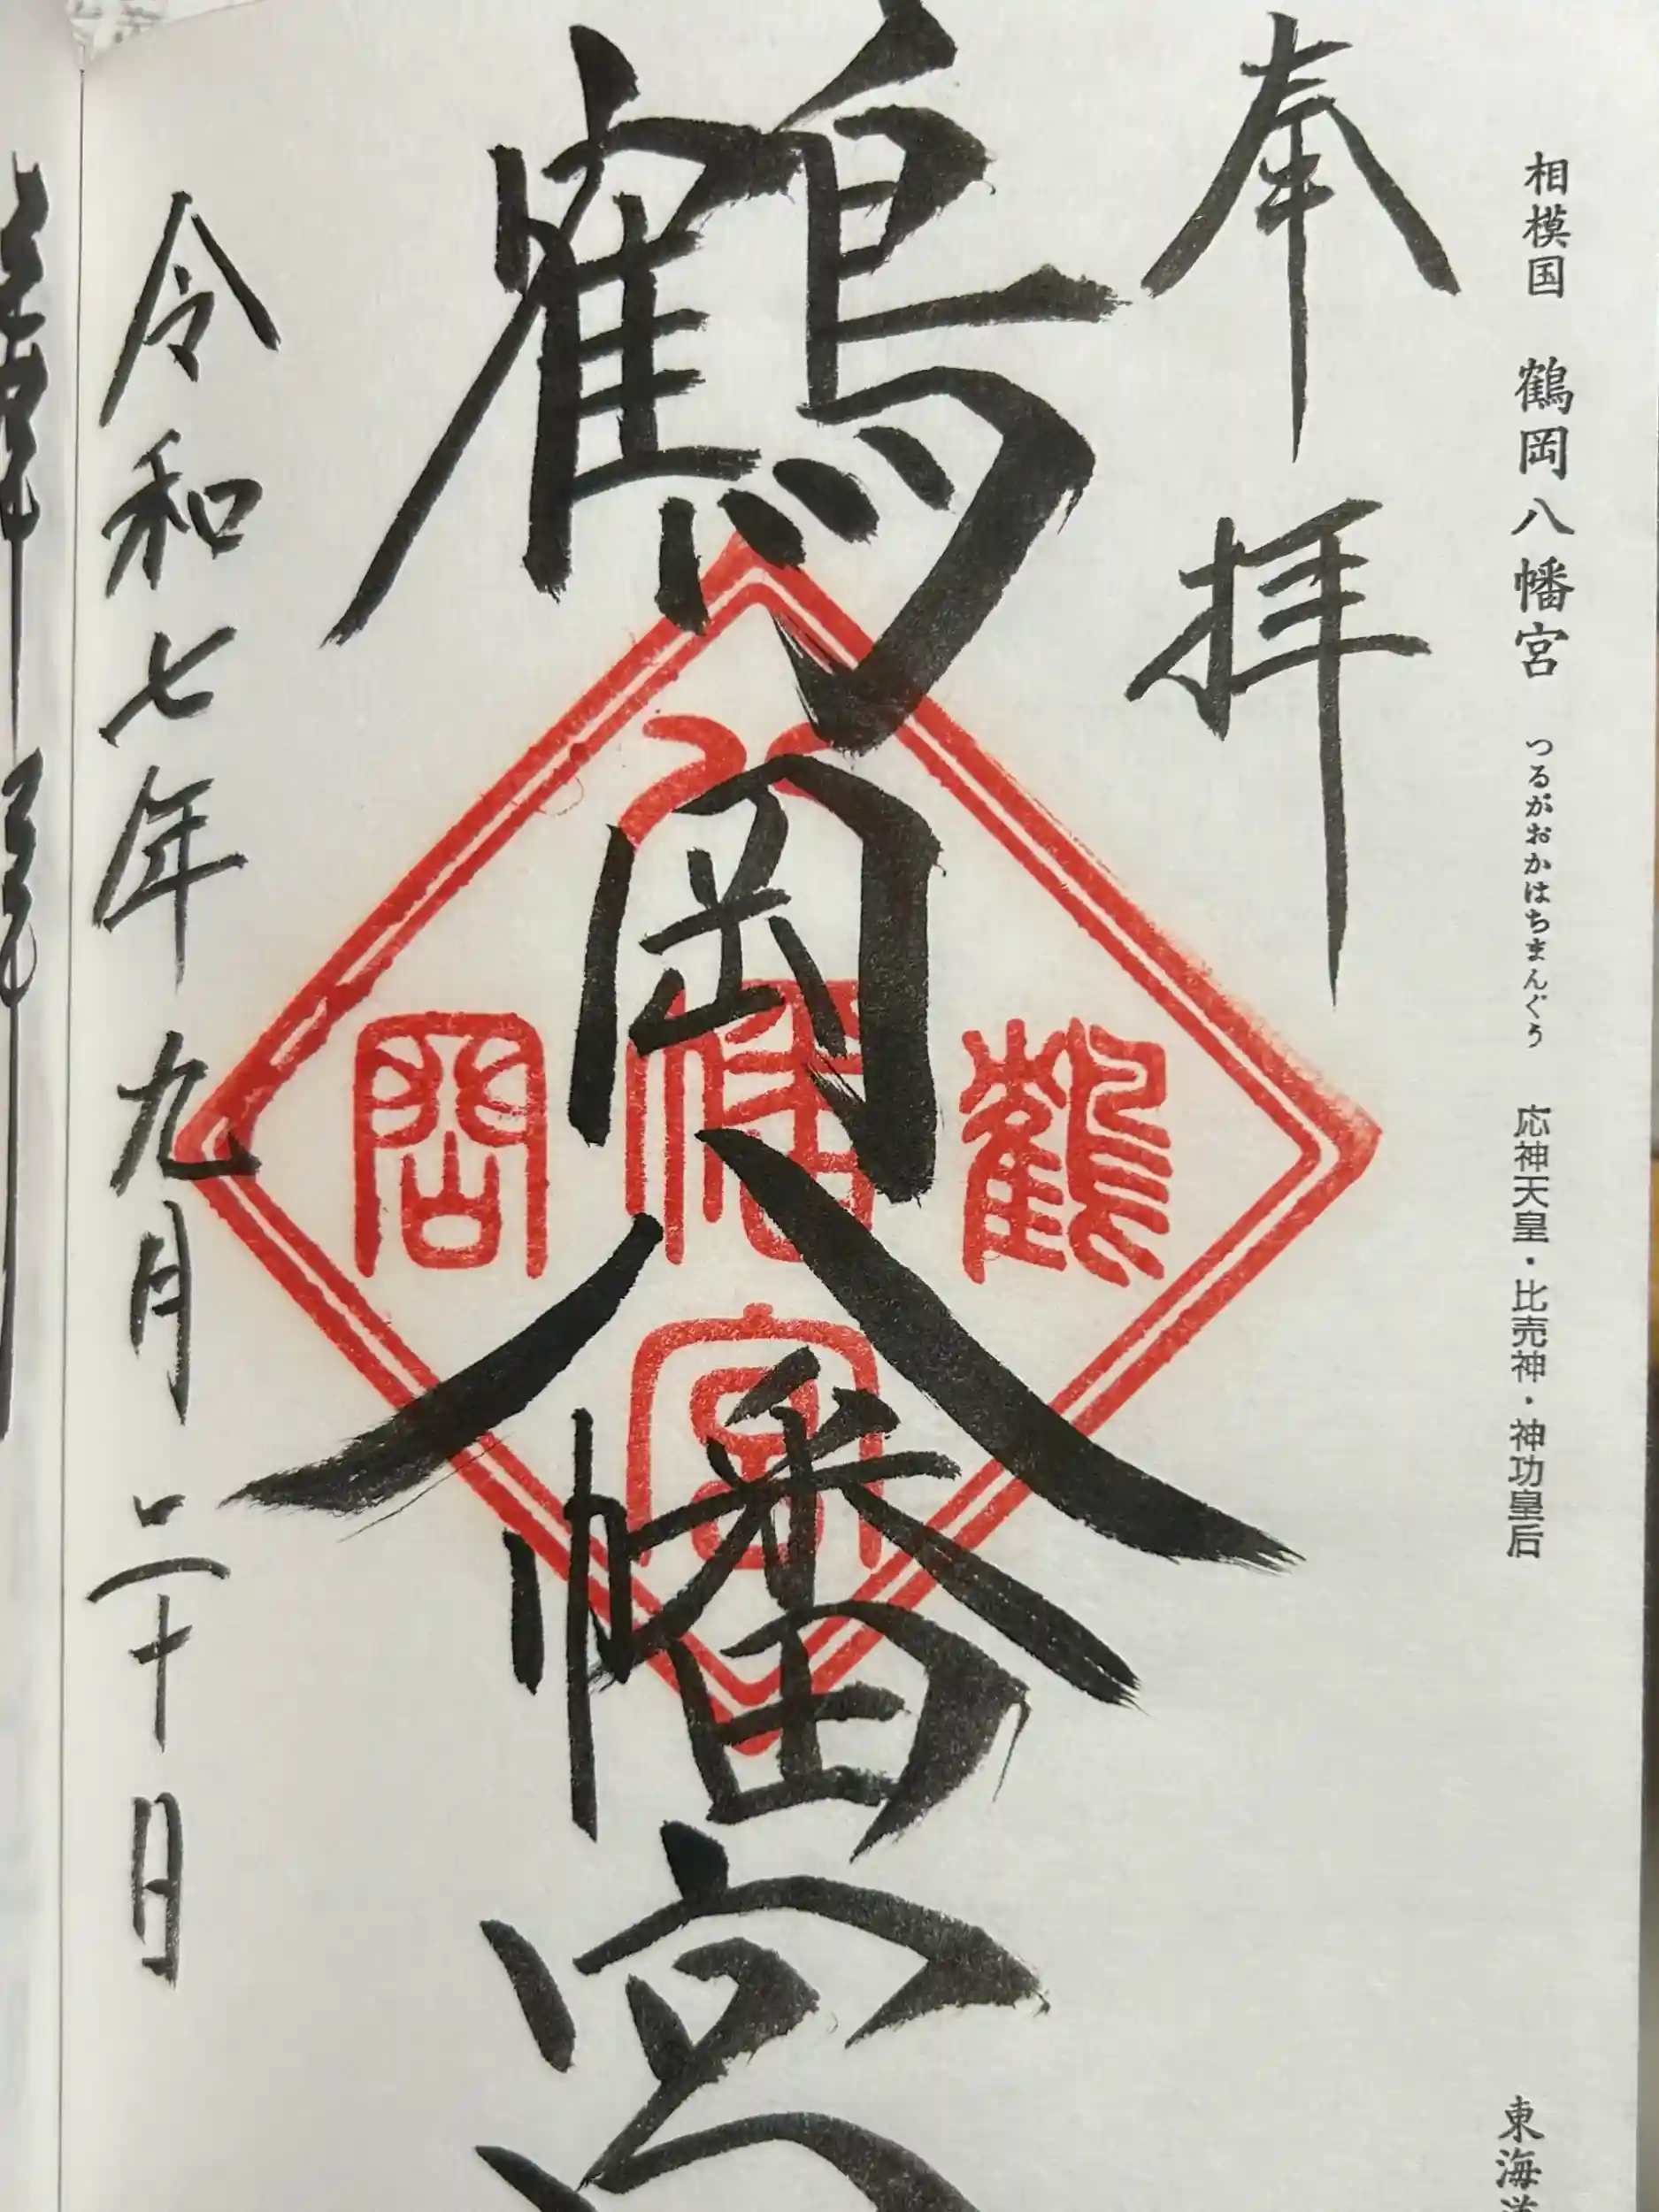 相模国 鶴岡八幡宮 つるがおかはちまんぐう 応神天皇・比売神・神功皇后
東海道
奉拝
鶴岡八幡宮
八
鶴 幡 岡
宮
令和七年九月二十日